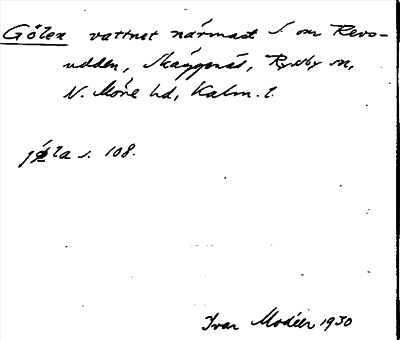 Gölen vattnet närmast S. om Revs-
udden, Skäggenäs, Ryssby sn,
N. Möre hd, Kalm. l.
jöla s. 108.
Ivar Modéer 1930